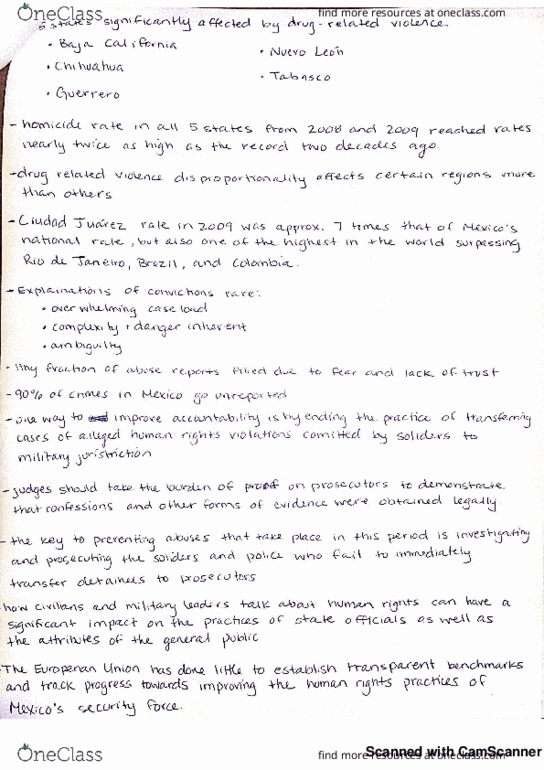 OneClass
find more resources at oneclass.com
5 states significantly affected by drug-related violence.
• Baja California
• Nuevo León
• Chihuahua
• Tabasco
• Guerrero
- homicide rate in all 5 states from 2008 and 2009 reached rates
nearly twice as high as the record two decades ago
-drug related violence disproportionality affects certain regions more
than others
- Ciudad Juárez rale in 2009 was approx. 7 times that of Mexico's
national rale, but also one of the highest in the world surpassing
Rio de Janeiro, Brazil, and Colombia.
- Explainations of convictions rare:
• over whelming case load
• complexity + danger inherent
• ambiguity
- tiny fraction of abuse reports filed due to fear and lack of trust
-90% of crimes in Mexico go unreported
-one way to improve accountability is by ending the practice of transferring
cases of alleged human rights violations comitted by soliders to
military juristriction
-judges should take the burden of proof on prosecutors to demonstrate
that confessions and other forms of evidence were obtained legally
- the key to preventing abuses that take place in this period is investigating
and prosecuting the soliders and police who fail to immediately
transfer detainees to prosecutors
how civilians and military leaders talk about human rights can have a
significant impact on the practices of state officials as well as
the attributes of the general public
The Europenan Union has done little to establish transparent benchmarks
and track progress towards improving the human rights practices of
Mexico's security force.
OneClass
find more resources at oneclass.com
Scanned with CamScanner